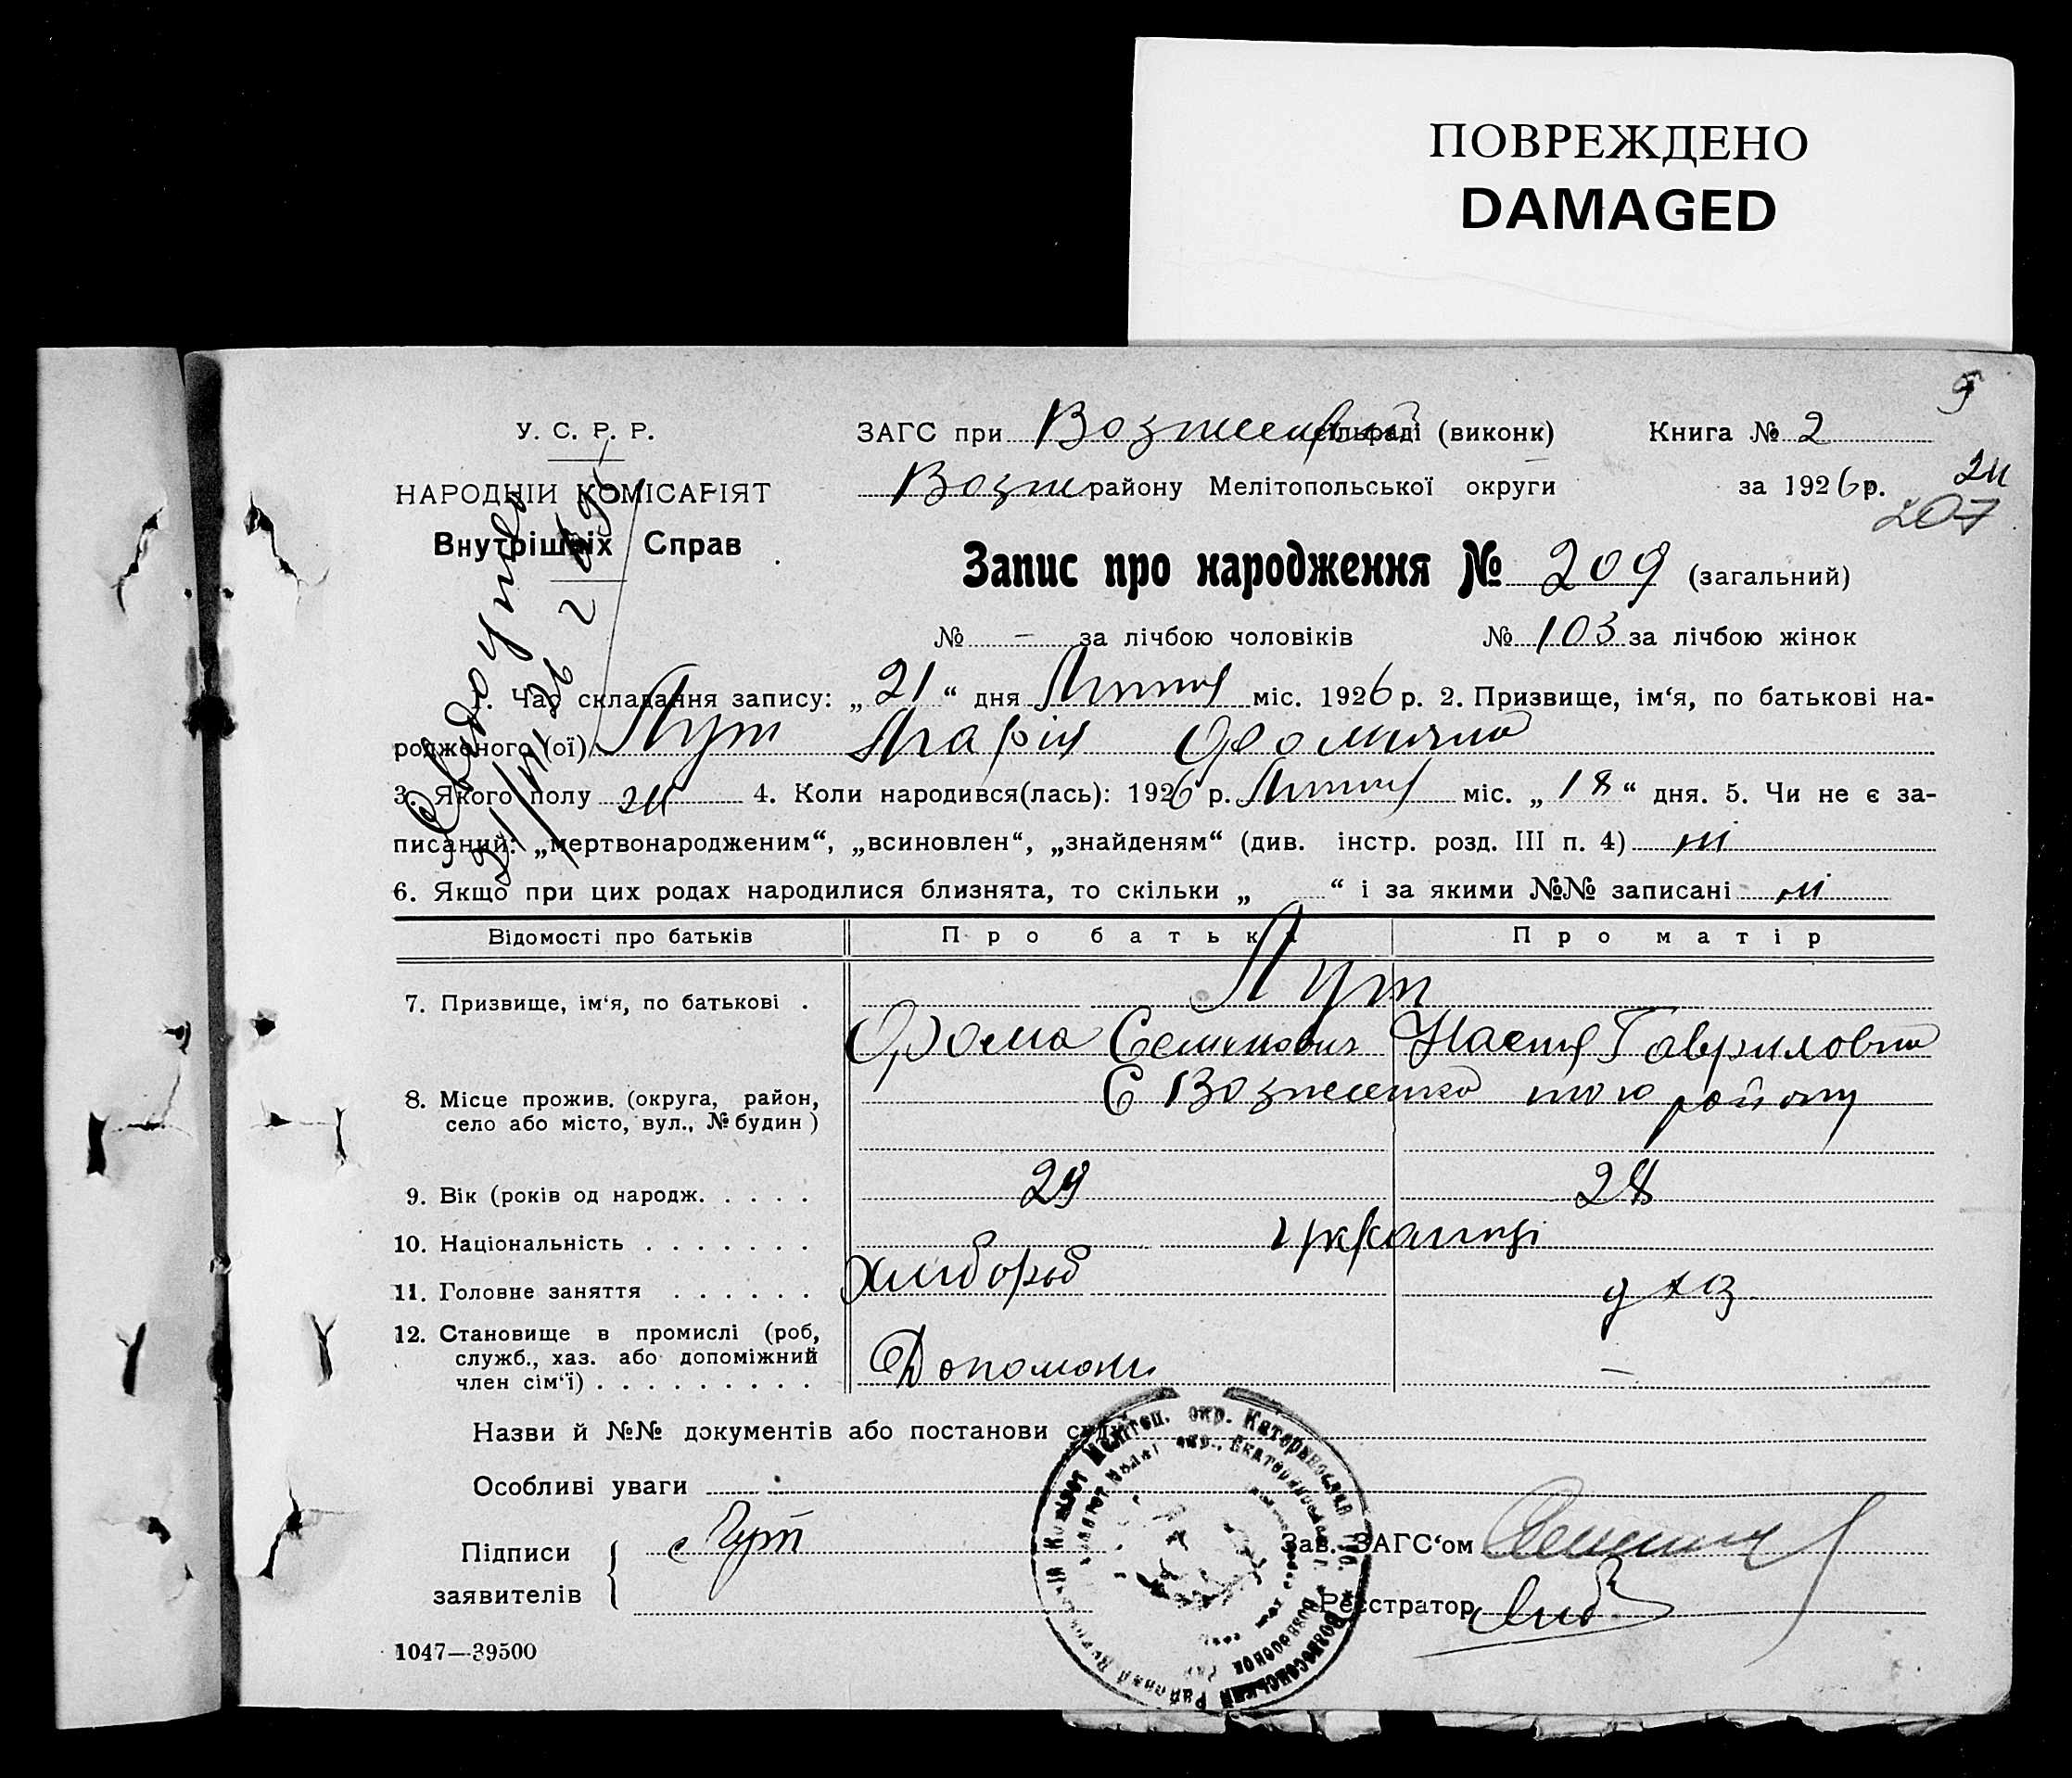 ПОВРЕЖДЕНО
DAMAGED
9
У. С. Р. Р.
НАРОДНІИ КОМІСАРІЯТ
Внутрішніх Справ
ЗАГС при сільраді (виконк) Книга № 2
Возн району Мелітопольської округи за 1926 р.
24
207
Запис про народження № 209 (загальний)
№ – за лічбою чоловіків № 103 за лічбою жінок
1. Час складання запису: „21“ дня Липня міс. 1926 р. 2. Призвище, ім‘я, по батькові на-
родженого (ої) Пут Марія Фомична
3. Якого полу ж 4. Коли народився(лась): 1926 р. Липня міс. „18“ дня. 5. Чи не є за-
писаний: „мертвонародженим“, „всиновлен“, „знайденям“ (див. інстр. розд. III п. 4) ні
6. Якщо при цих родах народилися близнята, то скільки „ “ і за якими №№ записані ні
Відомості про батьків Про батька Про матір
7. Призвище, ім‘я, по батькові . Пут
Фома Семенович Настя Гавриловна
8. Місце прожив. (округа, район, село або місто, вул., № будин ) С Вознесенка того району
9. Вік (років од народж. . . . . 29 28
10. Національність . . . . . . .
11. Головне заняття . . . . . . хлібороб
12. Становище в промислі (роб, служб., хаз. або допоміжний член сім‘ї) . . . . . . . . . –
Назви й №№ документів або постанови суду
Особливі уваги
Підписи
заявителів
Пут
Зав. ЗАГС‘ом
Реєстратор
1047—39500